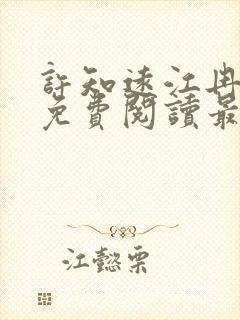 許知遠江冉
免費閱讀最
江懿栗